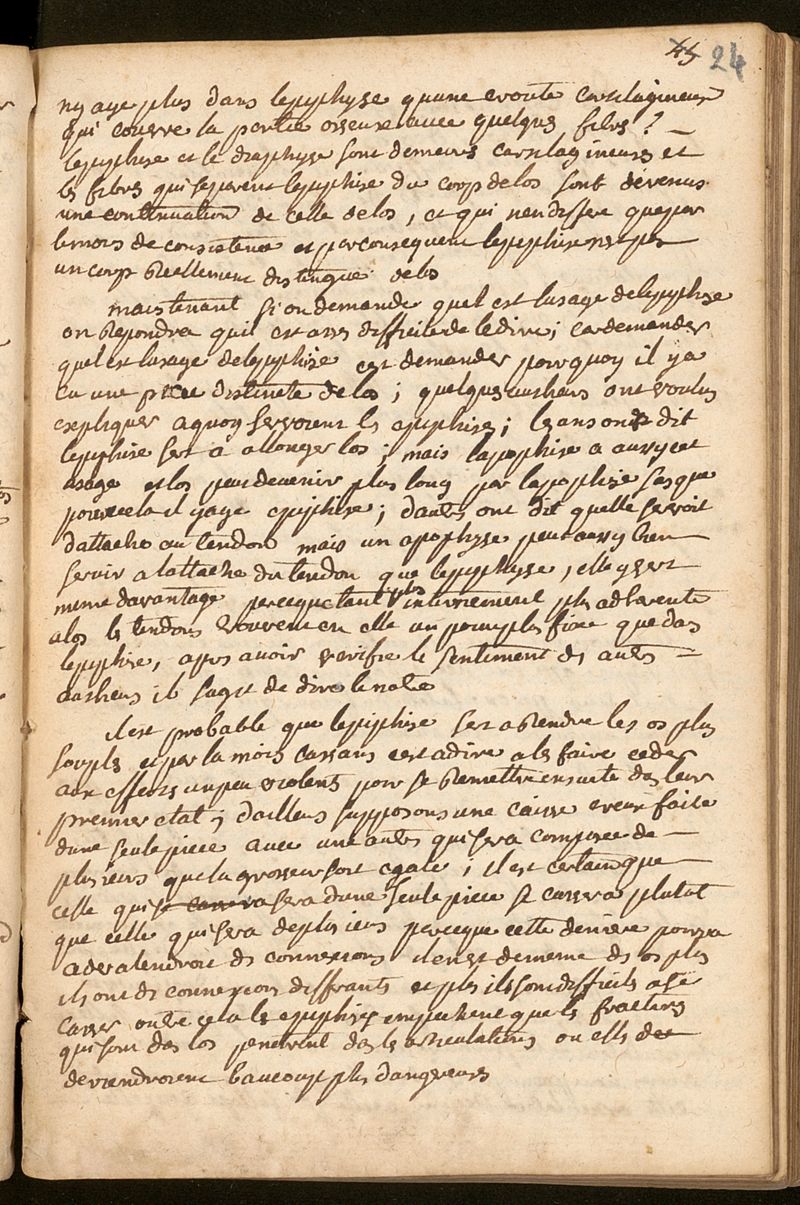 45 24
ny aye plus dans lepyphyse quune croute cartilagineuse
qui couvre la partie osseuse avec quelques fibres?
lepyphise et le diaphyse sont demeurés cartilagineuses et
les fibres qui separent lepyphise du corp de los sont devenus
une continuation de celle delos, et qui nen differe que par
le mois de consistence et par consequent lepyphise nest pas
un corp reellement distingué delos
maintenant si on demande quel est lusage de lepyphise
on repondra quil est asses difficile de le dire; car demander
quel est lusage delepyphise cest demander pourquoy il ya
eu une piece distincte de los; quelques autheurs ont voulus
expliquer a quoy servoient les epiphises; les ans ont dit
lepyphise sert a allonger los; mais lapophise a aussy cet
usage et los peut devenir plus long par lapophise sas que
pour cela il y aye epiphise; dautes ont dit quelle servoit
dattache au tendon mais un apophyse peut aussy bien
servir a lattache du tendon que lepyphyse, elle y sert
meme davantage parceque tant plus intimement plus adherente
alos les tendons trouvent en elle un point plus fixe que das
lepyphise, apres avoir verifie le sentiment des autes
autheurs il sagit de dire le notre
il est probable que lepiphise sert a rendre les os plus
souples et par la mois cassans cest adire a les faire ceder
aux efforts un peu violents pour se remettre ensuite das leur
premier etat; dailleurs supposons une caisse creux faite
dune seule piece avec une autes qui sera composee de
plusieurs que la grosseur soit egale; il est certain que
celle qui se cassera sera dune seule piece se cassera plutot
que celle qui sera de plusieurs parceque cette deniere pourra
a lendroit des connexions il en est de meme des os plus
ils ont des connexions differants et plus ils sont difficiles a se
casser outre cela les epiphises empechent que les fractures
qui sont das los penetrent das les articulations ou elles
deviendroient baucoup plus dangereuses